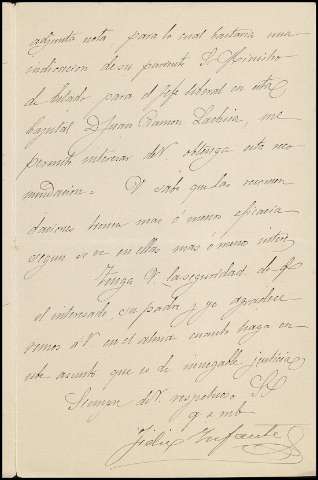 adjunta nota para lo cual bastaria una
indicacion de su pariente el Ministro
de Estado para el jefe liberal en esta
Capital D Juan Ramon Lachica, me
permito interesar de V. obtenga esta reco
mendacion. V sabe que las recomen
daciones tienen mas ó menos eficacia
segun se ve en ellas mas ó menos interes
Tenga V. la seguridad de q
el interesado, su padre y yo agradece
remos a V en el alma cuanto haga en
este asunto que es de innegable justicia
Siempre de V. respetuoso SS
q s m b
Felix Infante